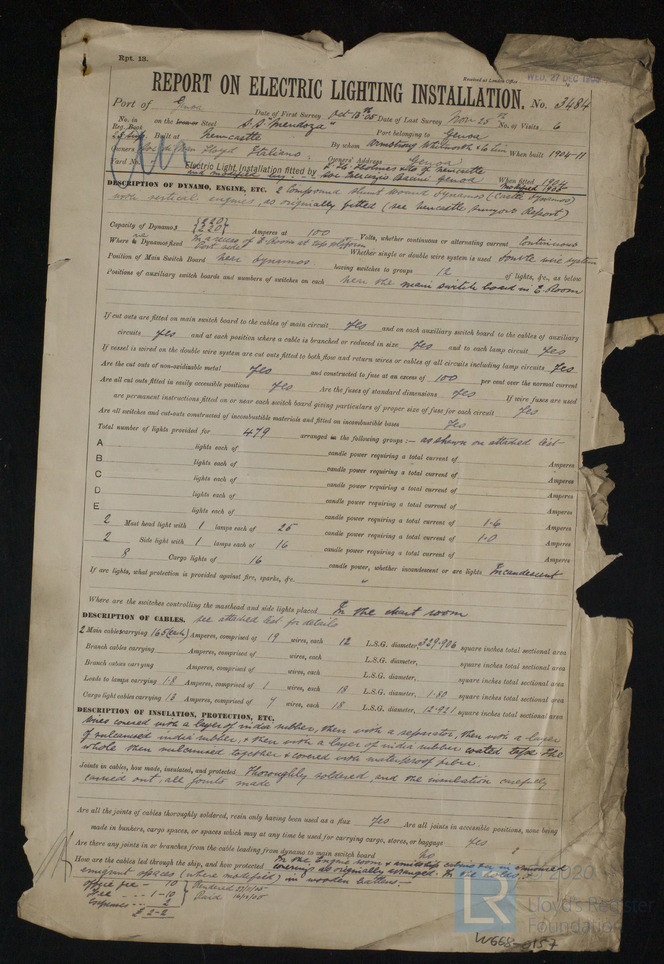 Rpt. 13.
Received at London Office WED. 27 DEC 1905
REPORT ON ELECTRIC LIGHTING INSTALLATION. No. 3484
Port of Genoa Date of First Survey Oct 18th 05 Date of Last Survey Nov 25th No. of Visits 6
No. in Reg. Book on the Iron or Steel S.S. "Mendoza" Port belonging to Genoa
Built at Newcastle By whom Armstrong Whitworth & Co Lim When built 1904-11
Owners Lloyd Italiano Owners' Address Genoa
Yard No. Electric Light Installation fitted by Holmes & Co of Newcastle When fitted 1904
and modified by Genoa modified 1905
DESCRIPTION OF DYNAMO, ENGINE, ETC. 2 Compound Shunt Wound dynamos (Castle dynamos)
with vertical engines, as originally fitted (see Newcastle Surveyors Report)
Capacity of Dynamos {220} {220} Amperes at 100 Volts, whether continuous or alternating current Continuous
Where is Dynamo fixed In a recess of E. Room at top platform Port side Whether single or double wire system is used double wire system
Position of Main Switch Board near dynamos having switches to groups 12 of lights, &c., as below
Positions of auxiliary switch boards and numbers of switches on each near the main switch board in E. Room
If cut outs are fitted on main switch board to the cables of main circuit Yes and on each auxiliary switch board to the cables of auxiliary
circuits Yes and at each position where a cable is branched or reduced in size Yes and to each lamp circuit Yes
If vessel is wired on the double wire system are cut outs fitted to both flow and return wires or cables of all circuits including lamp circuits Yes
Are the cut outs of non-oxidizable metal Yes and constructed to fuse at an excess of 100 per cent over the normal current
Are all cut outs fitted in easily accessible positions Yes Are the fuses of standard dimensions Yes If wire fuses are used
are permanent instructions fitted on or near each switch board giving particulars of proper size of fuse for each circuit Yes
Are all switches and cut-outs constructed of incombustible materials and fitted on incombustible bases Yes
Total number of lights provided for 479 arranged in the following groups :— as shown on attached list
A lights each of candle power requiring a total current of Amperes
B lights each of candle power requiring a total current of Amperes
C lights each of candle power requiring a total current of Amperes
D lights each of candle power requiring a total current of Amperes
E lights each of candle power requiring a total current of Amperes
2 Mast head light with 1 lamps each of 25 candle power requiring a total current of 1·6 Amperes
2 Side light with 1 lamps each of 16 candle power requiring a total current of 1·0 Amperes
8 Cargo lights of 16 candle power, whether incandescent or arc lights Incandescent
If arc lights, what protection is provided against fire, sparks, &c. "
Where are the switches controlling the masthead and side lights placed In the chart room
DESCRIPTION OF CABLES. see attached list for details
2 Main cables carrying 165 (each) Amperes, comprised of 19 wires, each 12 L.S.G. diameter, square inches total sectional area
Branch cables carrying Amperes, comprised of wires, each L.S.G. diameter, square inches total sectional area
Branch cables carrying Amperes, comprised of wires, each L.S.G. diameter, square inches total sectional area
Leads to lamps carrying 1·8 Amperes, comprised of 1 wires, each 18 L.S.G. diameter, 1·80 square inches total sectional area
Cargo light cables carrying 13 Amperes, comprised of 7 wires, each 18 L.S.G. diameter, 12·921 square inches total sectional area
DESCRIPTION OF INSULATION, PROTECTION, ETC.
Wires covered with a layer of india rubber, then with a separator, then with a layer
of vulcanised india rubber, & then with a layer of india rubber coated tape the
whole then vulcanised together & covered with waterproof fibre.
Joints in cables, how made, insulated, and protected Thoroughly soldered and the insulation carefully
carried out, all joints made
Are all the joints of cables thoroughly soldered, resin only having been used as a flux Yes Are all joints in accessible positions, none being
made in bunkers, cargo spaces, or spaces which may at any time be used for carrying cargo, stores, or baggage Yes
Are there any joints in or branches from the cable leading from dynamo to main switch board No
How are the cables led through the ship, and how protected In the Engine room & amidships cabins
as originally arranged. In the holds &
emigrant spaces (where modified) in wooden battens.
Office fee - 10
Fee ... 1-10
Expenses ... 2
£ 2-2
Rendered
Paid
© 2020
LR Lloyd's Register
Foundation
W668-0157